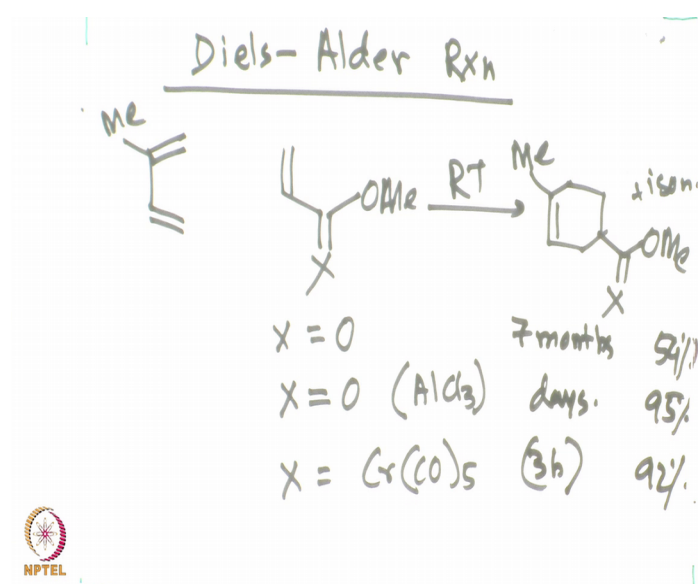 Diels-Alder Rxn
Me
OMe
RT
Me
+ isom
OMe
X
X
X = O 7 months 54%
X = O (AlCl3) days. 95%
X = Cr(CO)5 (3h) 92%
NPTEL